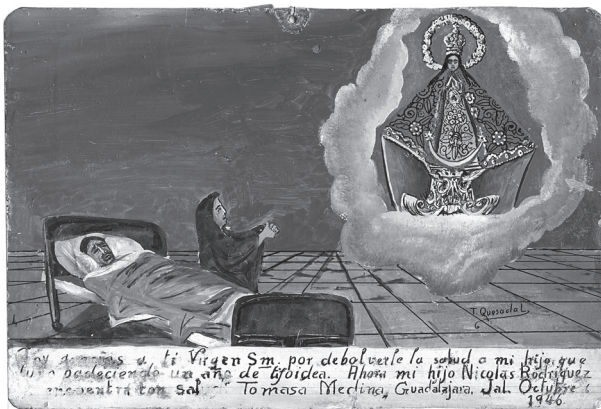 T. Quesada L.
Doy gracias a, ti Virgen Sm. por debolverle la salud a mi hijo que
tuvo padeciendo un año de tifoidea. Ahora mi hijo Nicolas Rodriguez
encuentra con Salud Tomasa Medina, Guadalajara, Jal. Octubre
1946